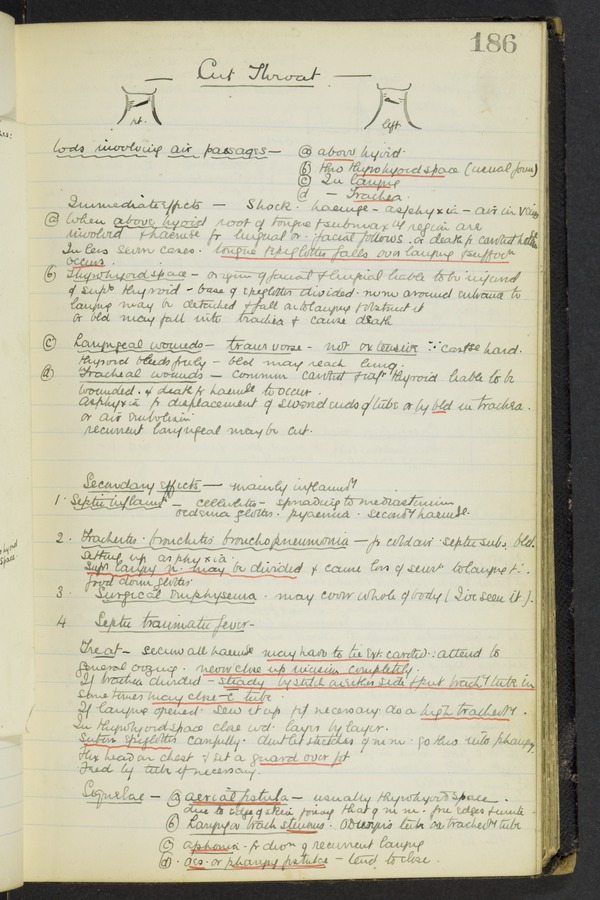 186
Cut Throat
rt.
left
Wds involving air passages — (a) above hyoid.
(b) thro thyrohyoid space (usual form)
(c) In larynx
(d) — Trachea.
Immediate effects — Shock. haemge - asphyxia - air in veins
(a) When above hyoid root of tongue & submaxy region are
involved & haemge fr lingual or facial follows. or death fr
In less severe cases. tongue & epiglottis falls over larynx & suffocn
occurs.
(b) Thyrohyoid space - origin of facial & lingual liable to be injured
of supr thyroid - base of epiglottis divided. mm around entrance to
larynx may be detached & fall into larynx & obstruct it
or bld may fall into trachea & cause death
(c) Laryngeal wounds - transverse - not extensive ∵ cartge hard.
Thyroid bleeds freely - bld may reach lung.
(d) Tracheal wounds - common carotid & thyroid liable to be
wounded. & death fr haemge to occur.
asphyxia fr displacement of severed ends of tube or by bld in trachea.
or air embolism
recurrent laryngeal may be cut.
Secondary effects — mainly inflammy
1. Septic inflamn — cellulitis - spreading to mediastinum
oedema glottis. pyaemia. secondy haemge.
2. Tracheitis. bronchitis bronchopneumonia - fr cold air septic subs. bld.
setting up asphyxia.
Supr laryn n. may be divided & cause loss of sensn to larynx ∴
food down glottis
3. Surgical Emphysema - may cover whole of body (I've seen it).
4 Septic traumatic fever -
Treat - secure all haemge may have to tie Ext carotid: attend to
general oozing. never close up incision completely.
If trachea divided - steady by stitch either side & put trachy tube in
sometimes may close c̄ tube.
If larynx opened. Sew it up & if necessary do a high tracheoty.
In thyrohyoid space close wd. layer by layer.
Suture epiglottis carefully. dont let stitches of mm. go thro into pharynx
Fix head on chest & set a guard over pt
Feed by tube if necessary.
Sequelae — (a) aerial fistula — usually thyrohyoid space.
due to edge of skin joining that of mm. free edges & unite -
(b) Larynx or trach stenosis. O'Dwyer's tube or tracheoty tube
(c) aphonia - fr divn of recurrent laryng
(d). oes. or pharynx fistulae - tend to close.